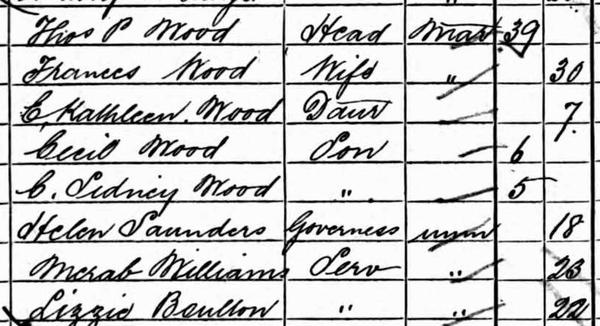 Thos P Wood Head Mar 39
Frances Wood Wife " 30
C. Kathleen. Wood Daur 7
Cecil Wood Son 6
C. Sidney Wood " 5
Helen Saunders Governess unm 18
Merab Williams Serv " 23
Lizzie Boulton " " 22